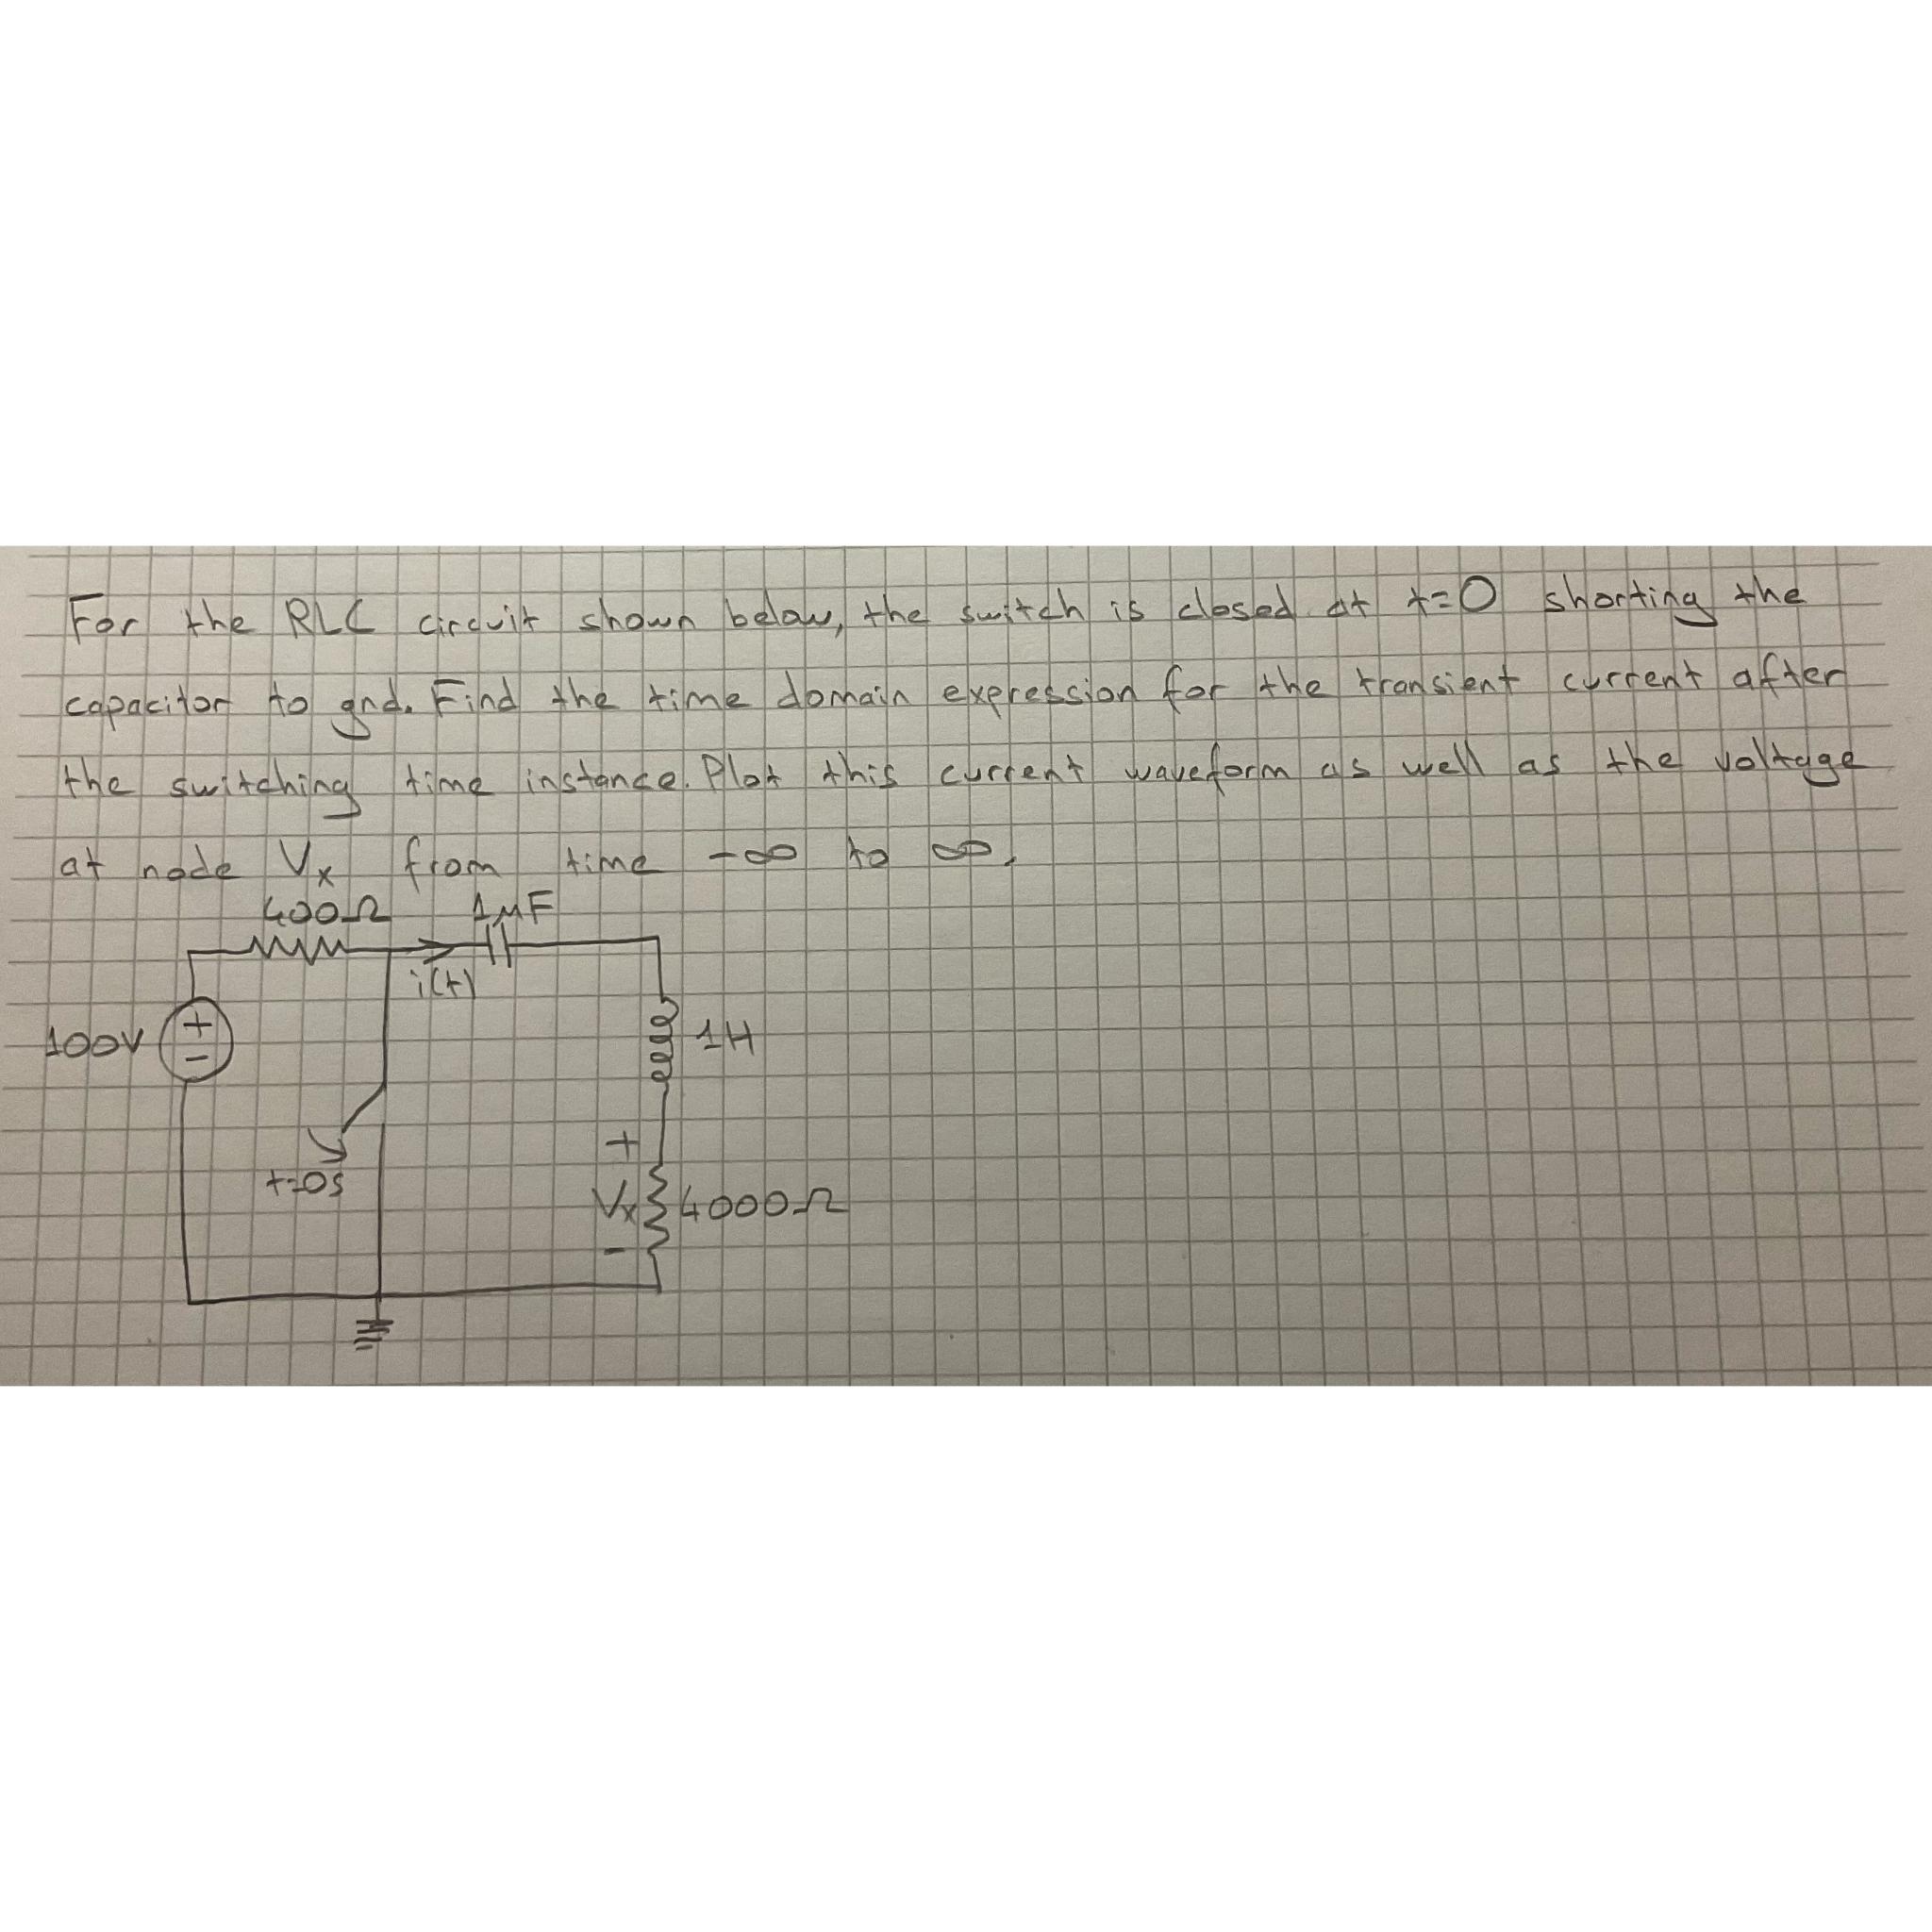 For the RLC circuit shown below, the switch is closed at t=0 shorting the
capacitor to gnd. Find the time domain expression for the transient current after
the switching time instance. Plot this current waveform as well as the voltage
at node Vx from time -∞ to ∞.
400Ω 1μF
i(t)
100V + -
1H
t=0s
+
Vx 4000Ω
-